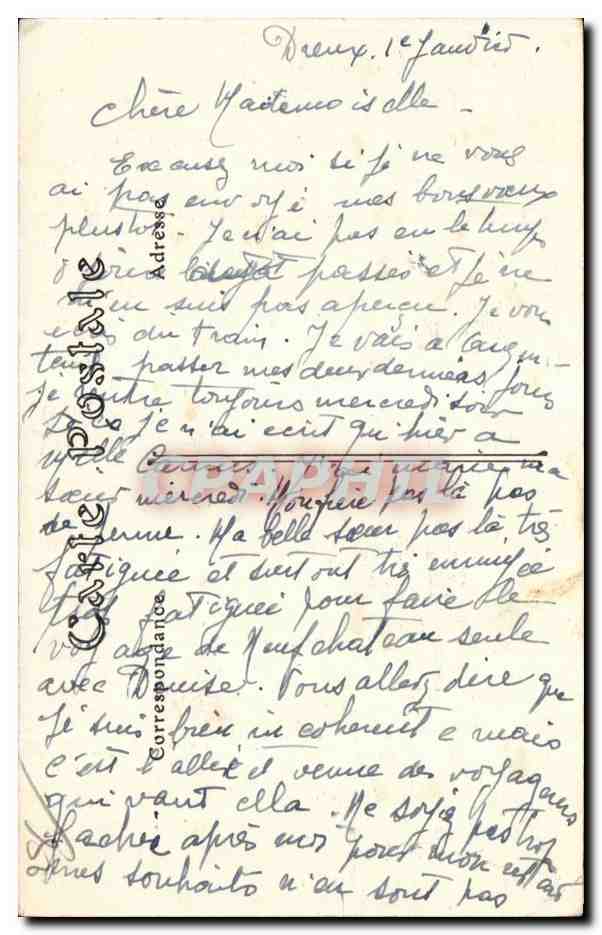 Dreux. 1e Janvier.
Chère Mademoiselle
Excusez moi si je ne vous
ai pas envoyé mes bons vœux
plustot. Je n'ai pas eu le temps
passé et je ne
m'en suis pas aperçu. Je vous
écris du train. Je vais à
passer mes deux derniers jours
je rentre toujours mercredi soir
je n'ai ecrit qu'hier a
ma
sœur mercredi. pas là pas
de . Ma belle sœur pas là, très
fatiguée et surtout très ennuyée
fatiguée pour faire le
voyage de Neufchateau seule
avec Denise. Vous allez dire que
je suis bien incoherente mais
c'est l'allée et venue des voyageurs
qui vaut cella. Ne soyez pas trop
fachée après moi pour mon retard
mes souhaits n'en sont pas
Carte postale
Adresse
Correspondance
CPAPHIL